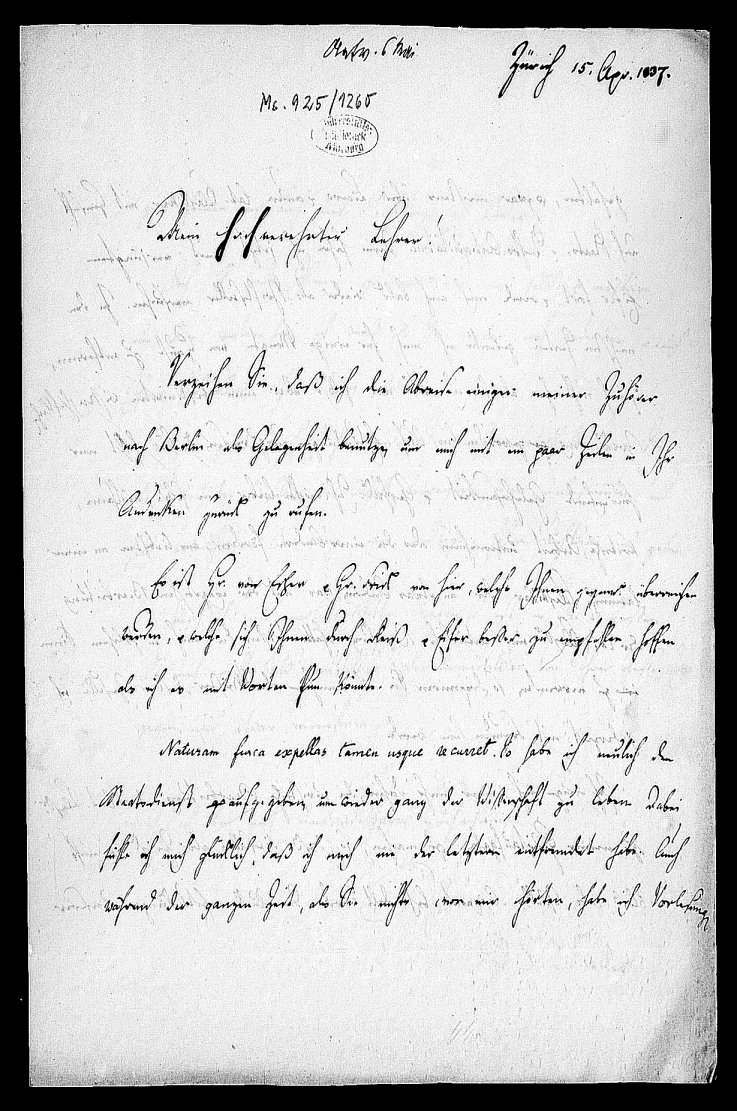 Antw. 6 Mai
Zürich 15. Apr. 1837.
Ms. 925/1260
Universitäts-
Bibliothek
Marburg
Mein hochverehrter Lehrer!
Verzeihen Sie, daß ich die Abreise einiger meiner Zuhörer
nach Berlin als Gelegenheit benutze, um mich mit ein paar Zeilen in Ihr
Andenken zurück zu rufen.
Es ist Hr. von Escher u Hr. von hier, welche Ihnen überreichen
werden, u welche sich Ihnen durch Fleiß u Eifer besser zu empfehlen hoffen
als ich es mit Worten thun könnte.
Naturam furca expellas tamen usque recurret. So habe ich neulich den
Staatsdienst aufgegeben um wieder ganz der Wißenschaft zu leben. Dabei
fühle ich mich glücklich, daß ich mich nie der letztern entfremdet habe. Auch
während der ganzen Zeit, als Sie nichts von mir hörten, habe ich Vorlesung